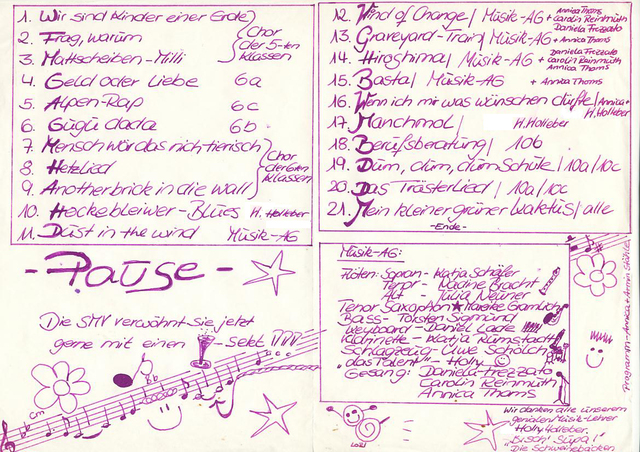 1. Wir sind Kinder einer Erde
2. Frag, warum
3. Mattscheiben-Milli
Chor der 5-ten Klassen
4. Geld oder Liebe 6a
5. Alpen-Rap 6c
6. Gugu dada 6b
7. Mensch wär das nicht tierisch
8. Hetzlied
9. Another brick in the wall
Chor der 6ten Klassen
10. Heckebleiwer-Blues H. Holleber
11. Dust in the wind Musik-AG
- Pause -
Die SMV verwöhnt Sie jetzt
gerne mit einem -Sekt
Cm
Bb
12. Wind of Change / Musik-AG + Annica Thoms Carolin Reinmuth
13. Graveyard-Train / Musik-AG Daniela Frezzato + Annica Thoms
14. Hiroshima / Musik-AG + Daniela Frezzato Carolin Reinmuth Annica Thoms
15. Basta / Musik-AG + Annica Thoms
16. Wenn ich mir was wünschen dürfte / Annica + H. Holleber
17. Manchmal / H. Holleber
18. Berufsberatung / 10b
19. Dum, dum, dum Schule / 10a / 10c
20. Das Trösterlied / 10a / 10c
21. Mein kleiner grüner Kaktus / alle
-Ende-
Musik-AG:
Flöten: Sopran - Katja Schäfer
Tenor - Nadine Bracht
Alt - Julia Neuner
Tenor Saxophon Mareke Gramlich
Bass - Torsten Sigmund
Keyboard - Daniel Lade
Klarinette - Katja Rumstadt
Schlagzeug - Uwe Schölch
"das Talent" - Holly
Gesang: Daniela Frezzato
Carolin Reinmuth
Annica Thoms
Wir danken alle unserem
genialen Musik-Lehrer
Holly Holleber.
"Bisch' Supa!"
Die Schweitebacken
Programm - Annica + Armin